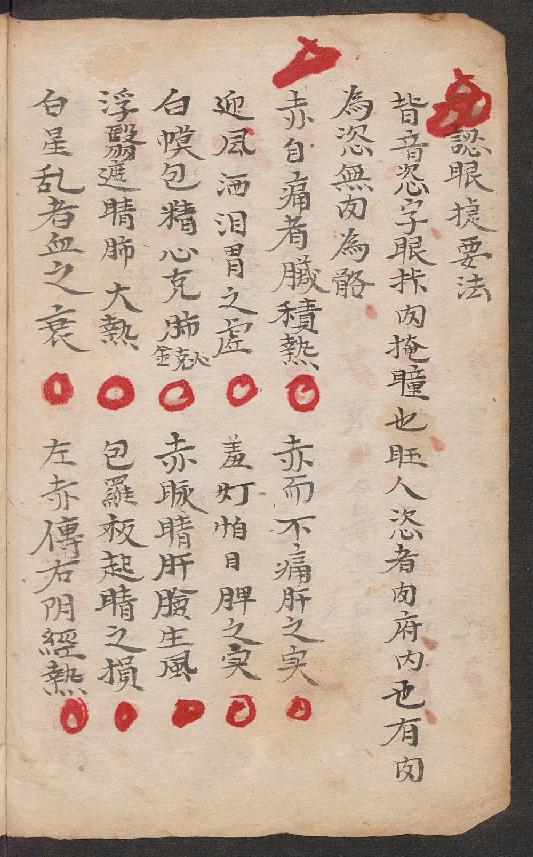 認眼捷要法
眥音恣字眼䀏肉掩瞳也眶人恣者肉府内也有肉
為恣無肉為骼
赤自痛者臓積熱 赤而不痛肝之实
迎風洒泪胃之虛 羞灯怕日脾之实
白幙包精心克肺金克火 赤脉睛肝臉生風
浮醫遮睛肺大熱 包羅板起睛之損
白星乱者血之衰 左赤傳右阴經熱